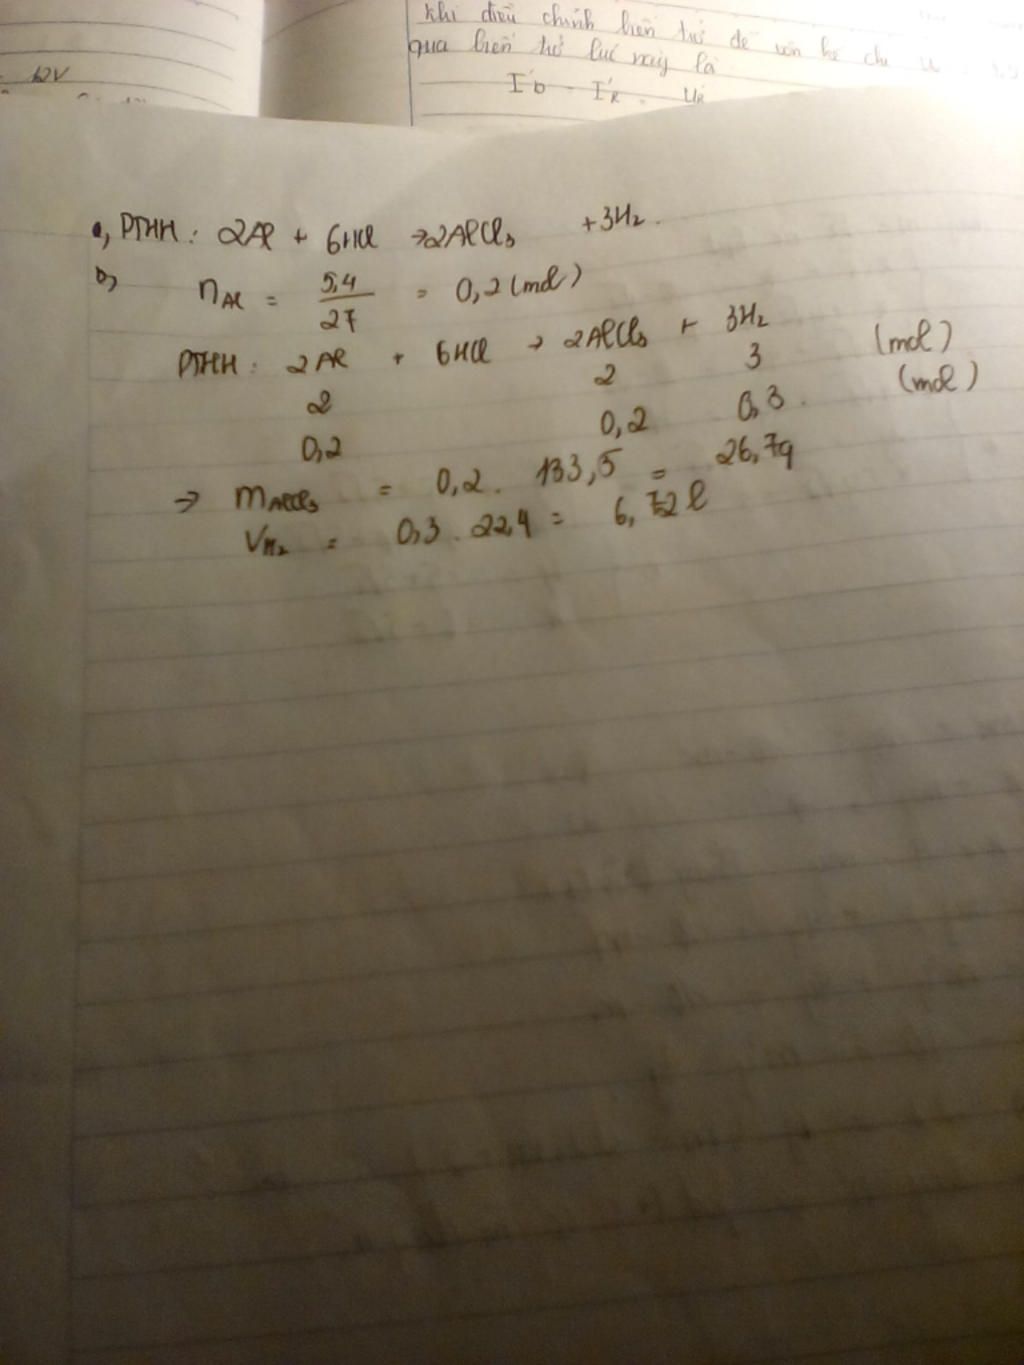 khi điều chỉnh biến trở để vôn kế chỉ U
qua biến trở lúc này là
I'b = I'R = UR
12V
a, PTHH: 2Al + 6HCl → 2AlCl3 + 3H2.
b, nAl = 5,4/27 = 0,2 (mol)
PTHH: 2Al + 6HCl → 2AlCl3 + 3H2
2 2 3 (mol)
0,2 0,2 0,3. (mol)
→ mAlCl3 = 0,2. 133,5 = 26,7g
VH2 = 0,3. 22,4 = 6,72l